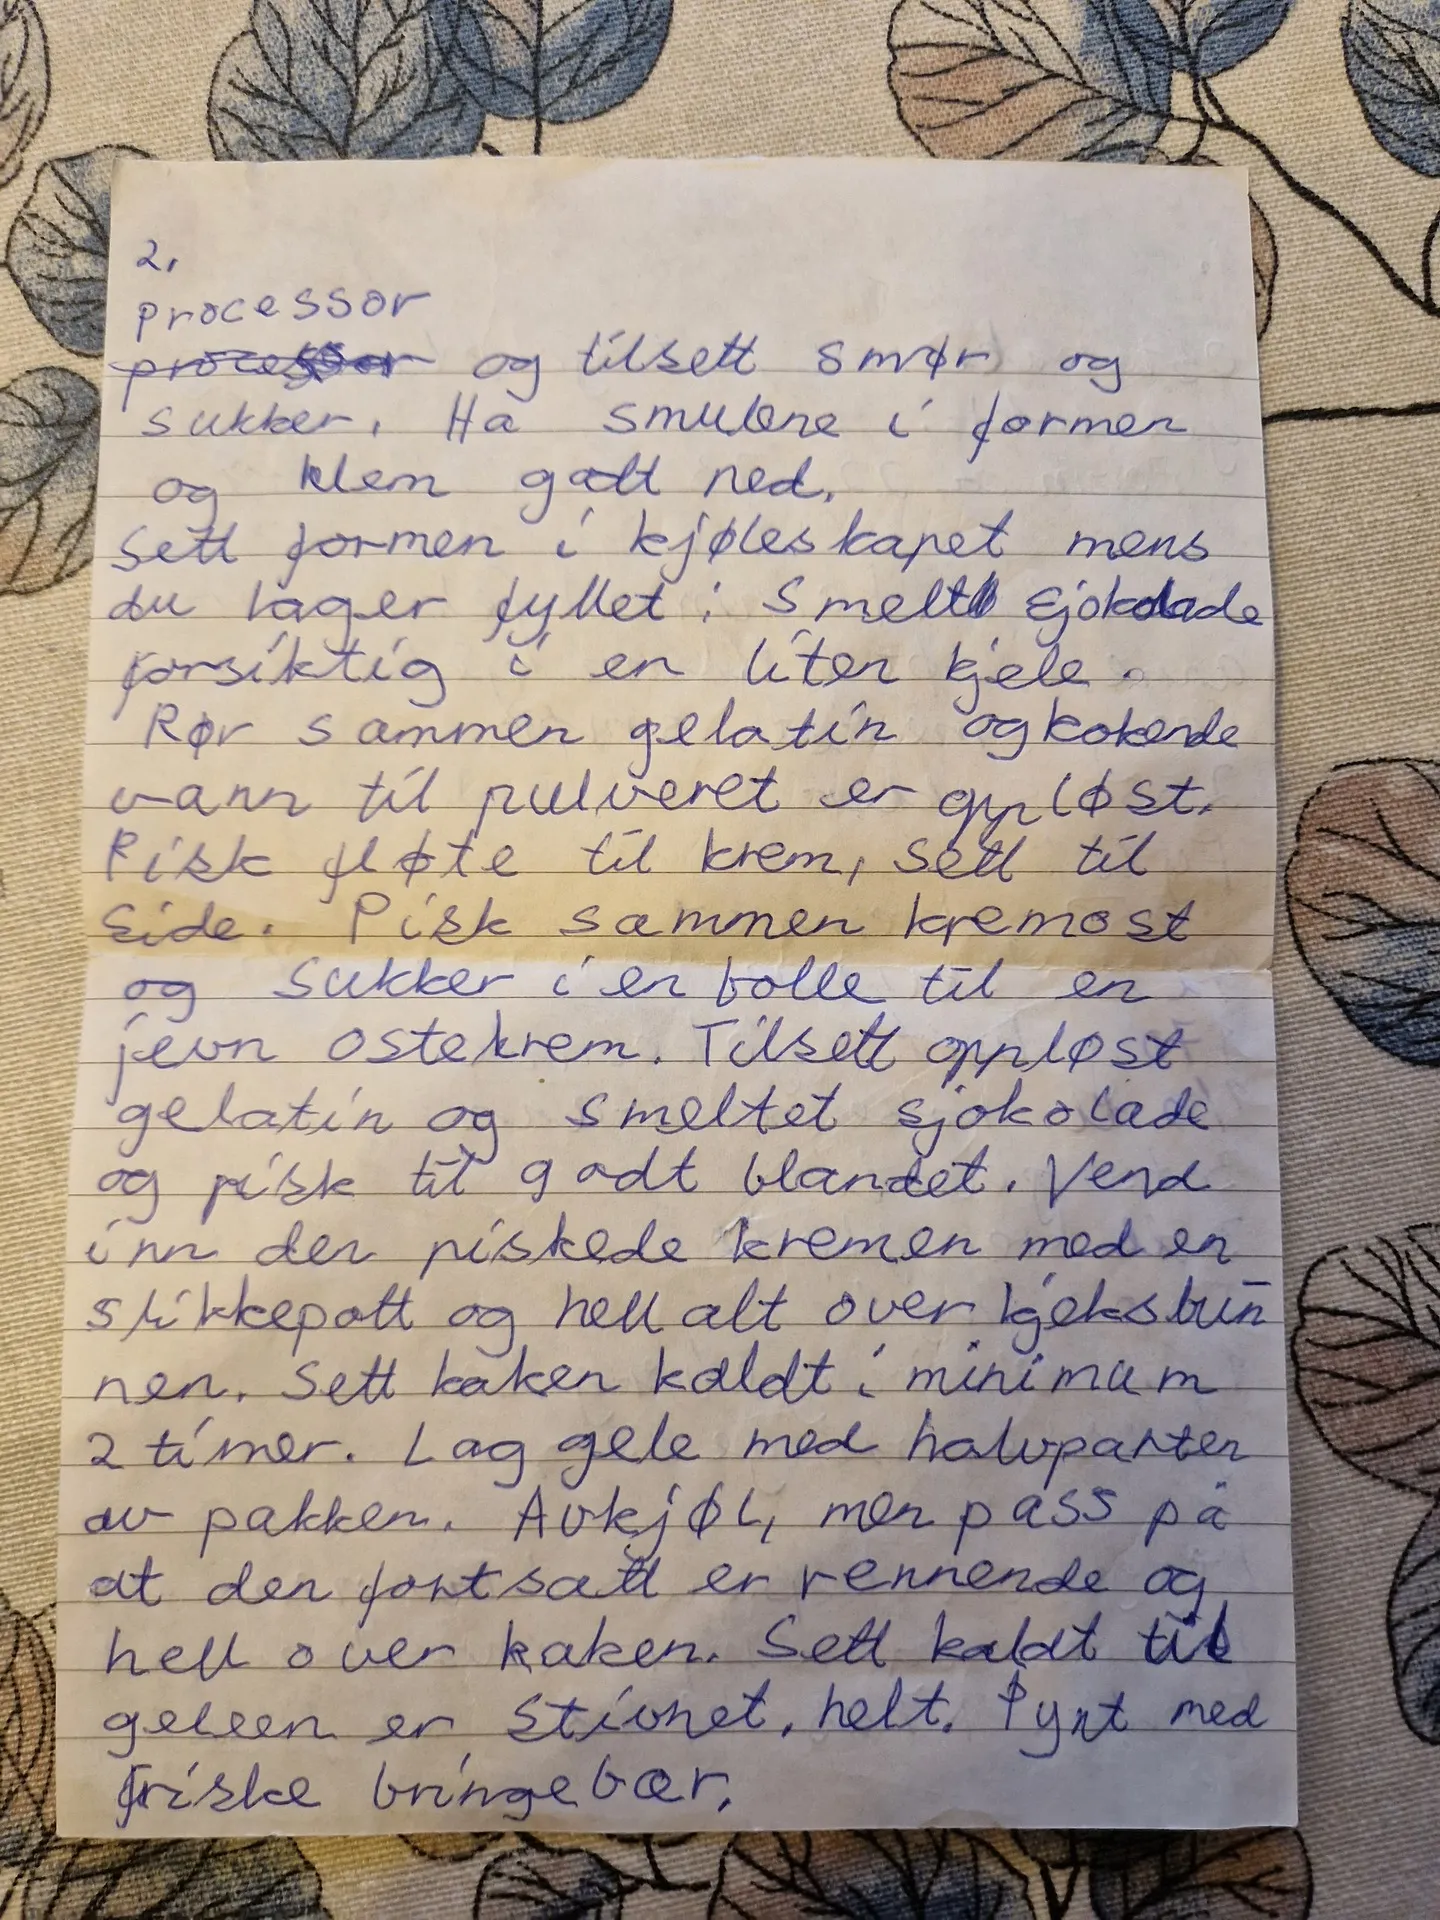 2.
processor
processor og tilsett smør og
sukker. Ha smulene i formen
og klem godt ned.
Sett formen i kjøleskapet mens
du lager fyllet: Smelt sjokolade
forsiktig i en liten kjele.
Rør sammen gelatin og kokende
vann til pulveret er oppløst.
Pisk fløte til krem, sett til
side. Pisk sammen kremost
og sukker i en bolle til en
jevn ostekrem. Tilsett oppløst
gelatin og smeltet sjokolade
og pisk til godt blandet. Vend
inn den piskede kremen med en
slikkepott og hell alt over kjeksbun-
nen. Sett kaken kaldt i minimum
2 timer. Lag gele med halvparten
av pakken. Avkjøl, men pass på
at den fortsatt er rennende og
hell over kaken. Sett kaldt til
geleen er stivnet, helt. Pynt med
friske bringebær.